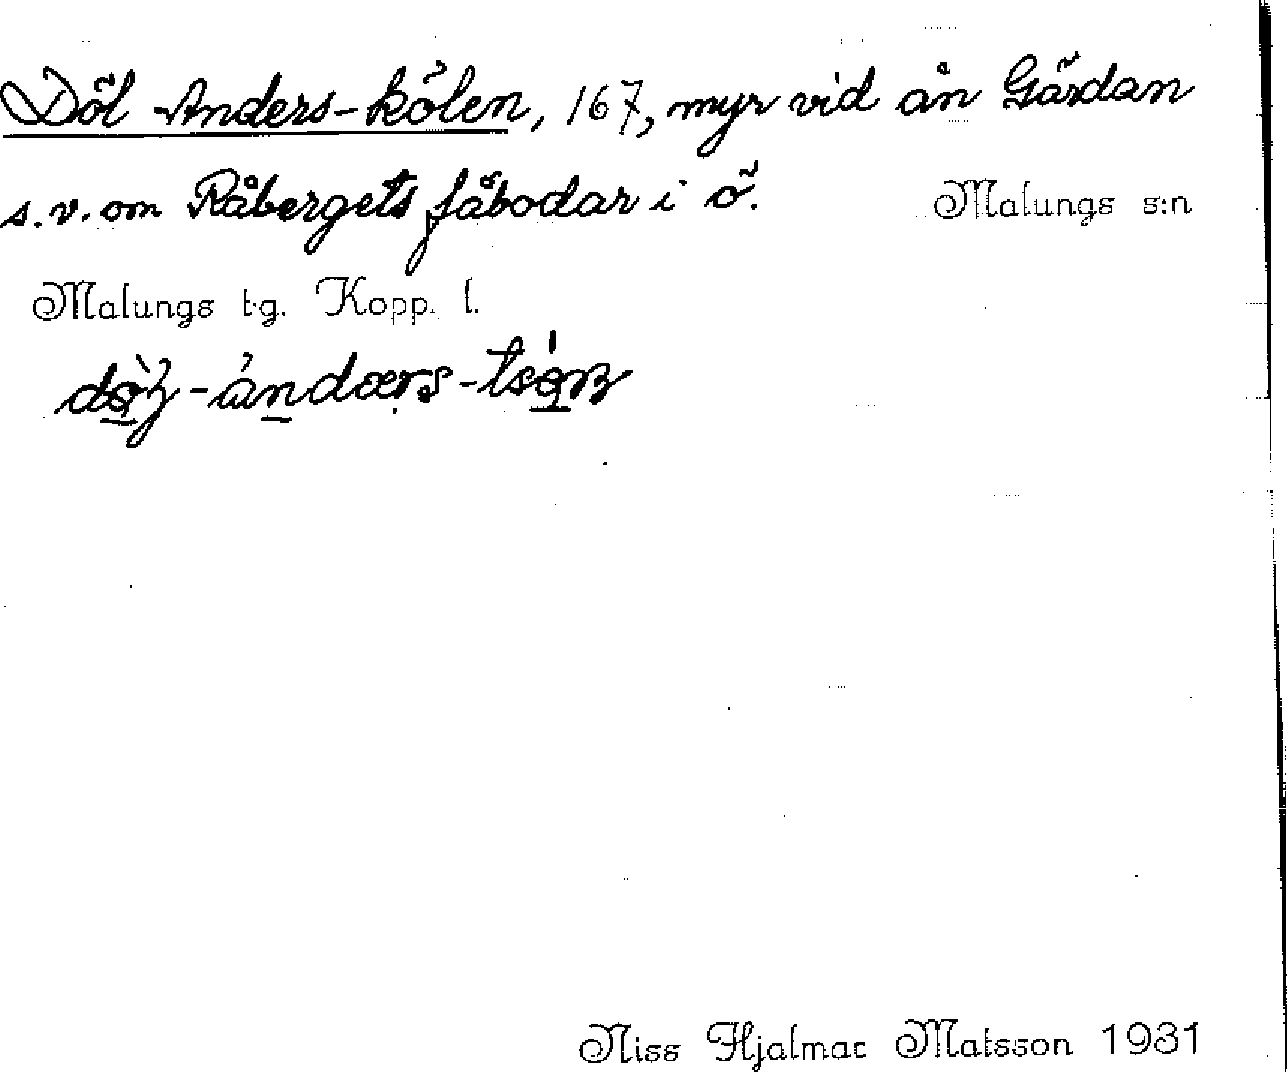 Döl-Anders-kölen, 167, myr vid ån Gärdan
s.v. om Råbergets fäbodar i ö. Malungs s:n
Malungs tg. Kopp. l.
Niss Hjalmar Matsson 1931